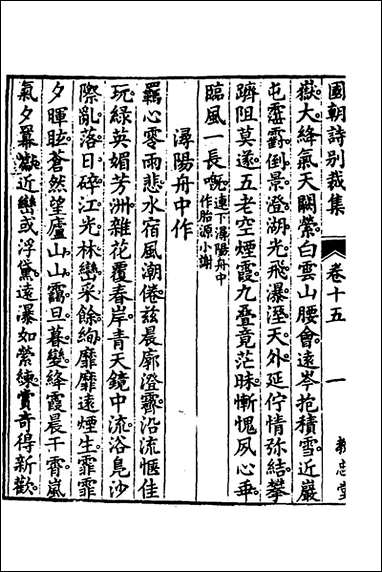 國朝詩别裁集
卷十五
一
教忠堂
嶽大絳氣天闕縈白雲山腰會遠岑抱積雪近巖
屯靈霨倒景澄湖光飛瀑溼天外延佇情弥結攀
躋阻莫遂五老空煙霞九疊竟茫昧慚愧夙心乖
臨風一長嘅連下潯陽舟中
作胎源小謝
潯陽舟中作
羈心零雨悲水宿風潮倦兹晨廓澄霽沿流愜佳
玩緑英媚芳洲雜花覆春岸青天鏡中流浴鳧沙
際亂落日碎江光林巒采餘絢靡靡遠煙生霏霏
夕暉眩蒼然望廬山山靄旦暮變絳霞晨干霄嵐
氣夕羃巘近巒或浮黛遠瀑如縈練賞奇得新歡